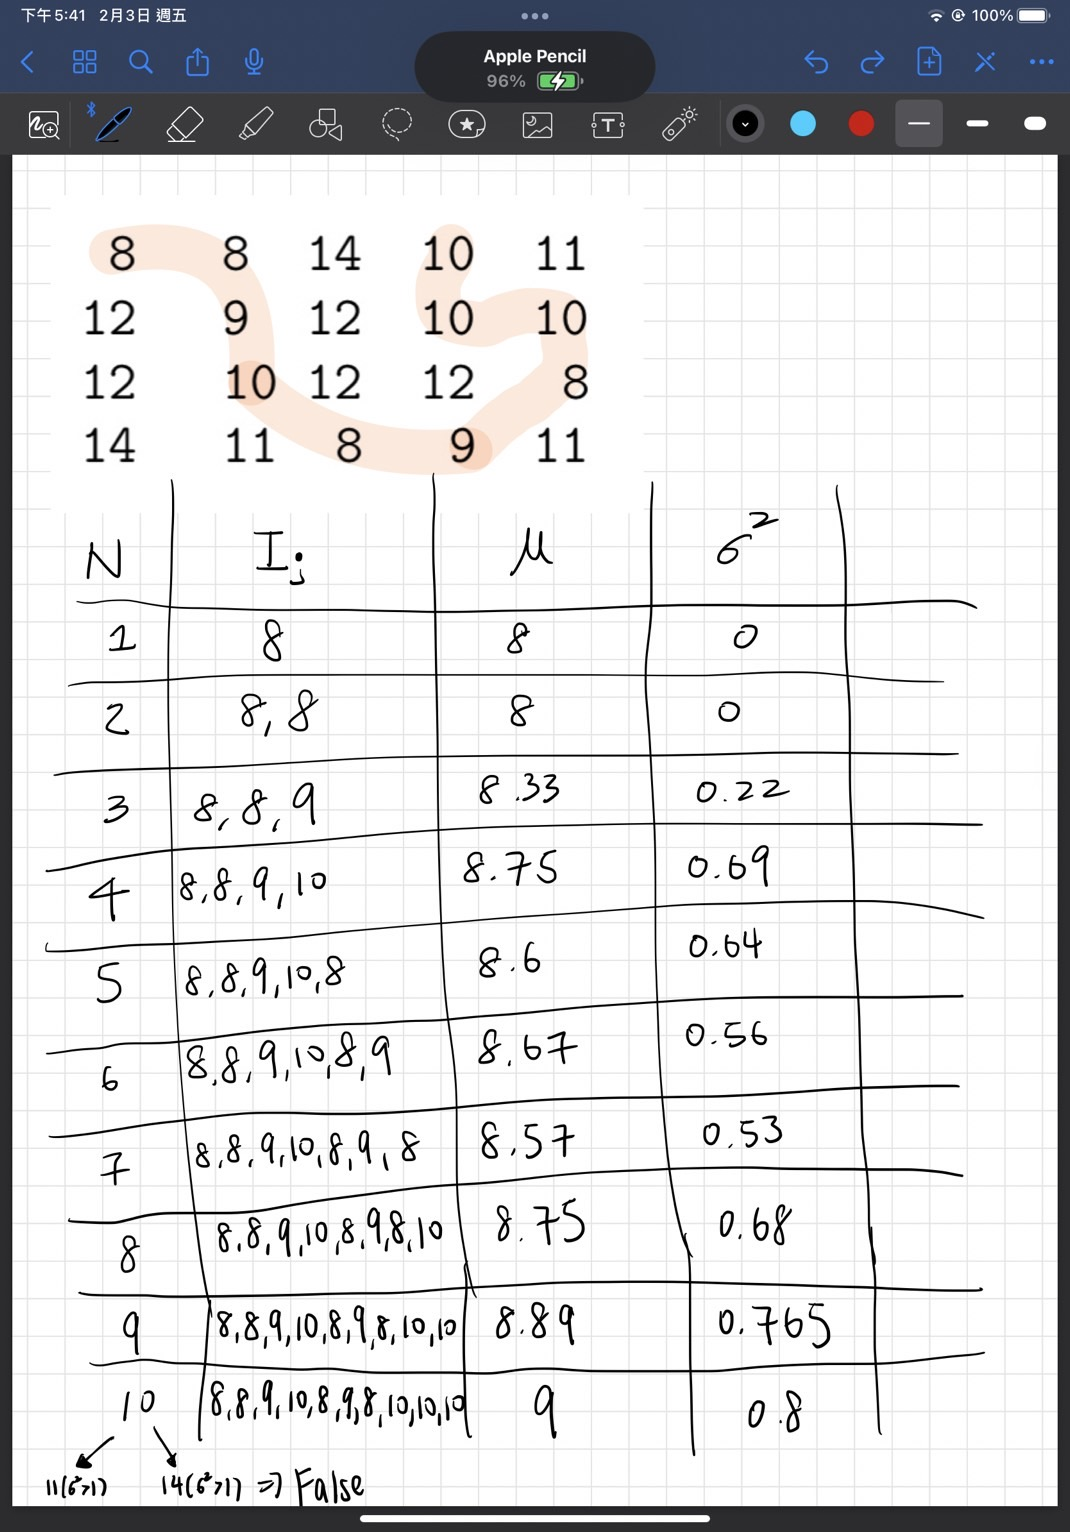 下午5:41 2月3日 週五
100%
Apple Pencil
96%
8 8 14 10 11
12 9 12 10 10
12 10 12 12 8
14 11 8 9 11
N Ij μ σ²
1 8 8 0
2 8, 8 8 0
3 8, 8, 9 8.33 0.22
4 8,8,9,10 8.75 0.69
5 8,8,9,10,8 8.6 0.64
6 8,8,9,10,8,9 8.67 0.56
7 8,8,9,10,8,9,8 8.57 0.53
8 8,8,9,10,8,9,8,10 8.75 0.68
9 8,8,9,10,8,9,8,10,10 8.89 0.765
10 8,8,9,10,8,9,8,10,10,10 9 0.8
11(σ²>1) 14(σ²>1) => False